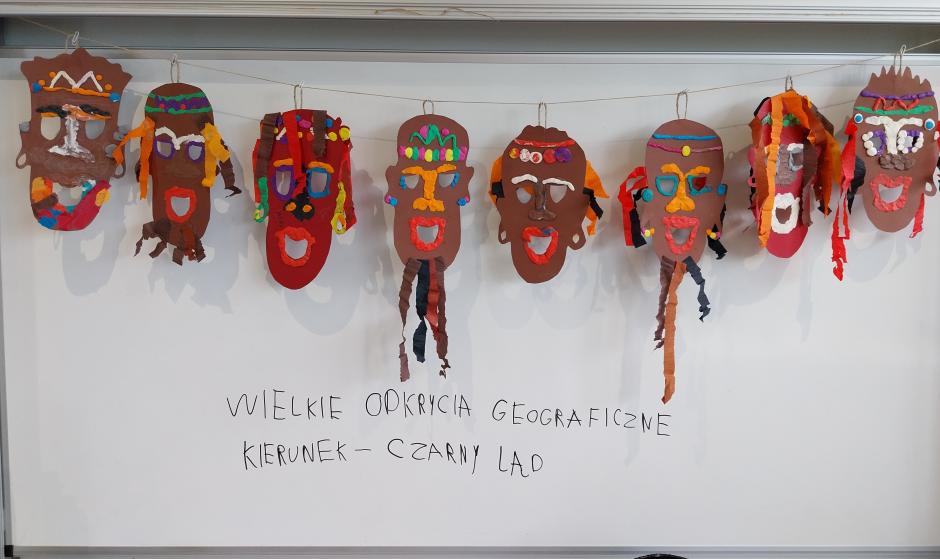 WIELKIE ODKRYCIA GEOGRAFICZNE
KIERUNEK – CZARNY LĄD